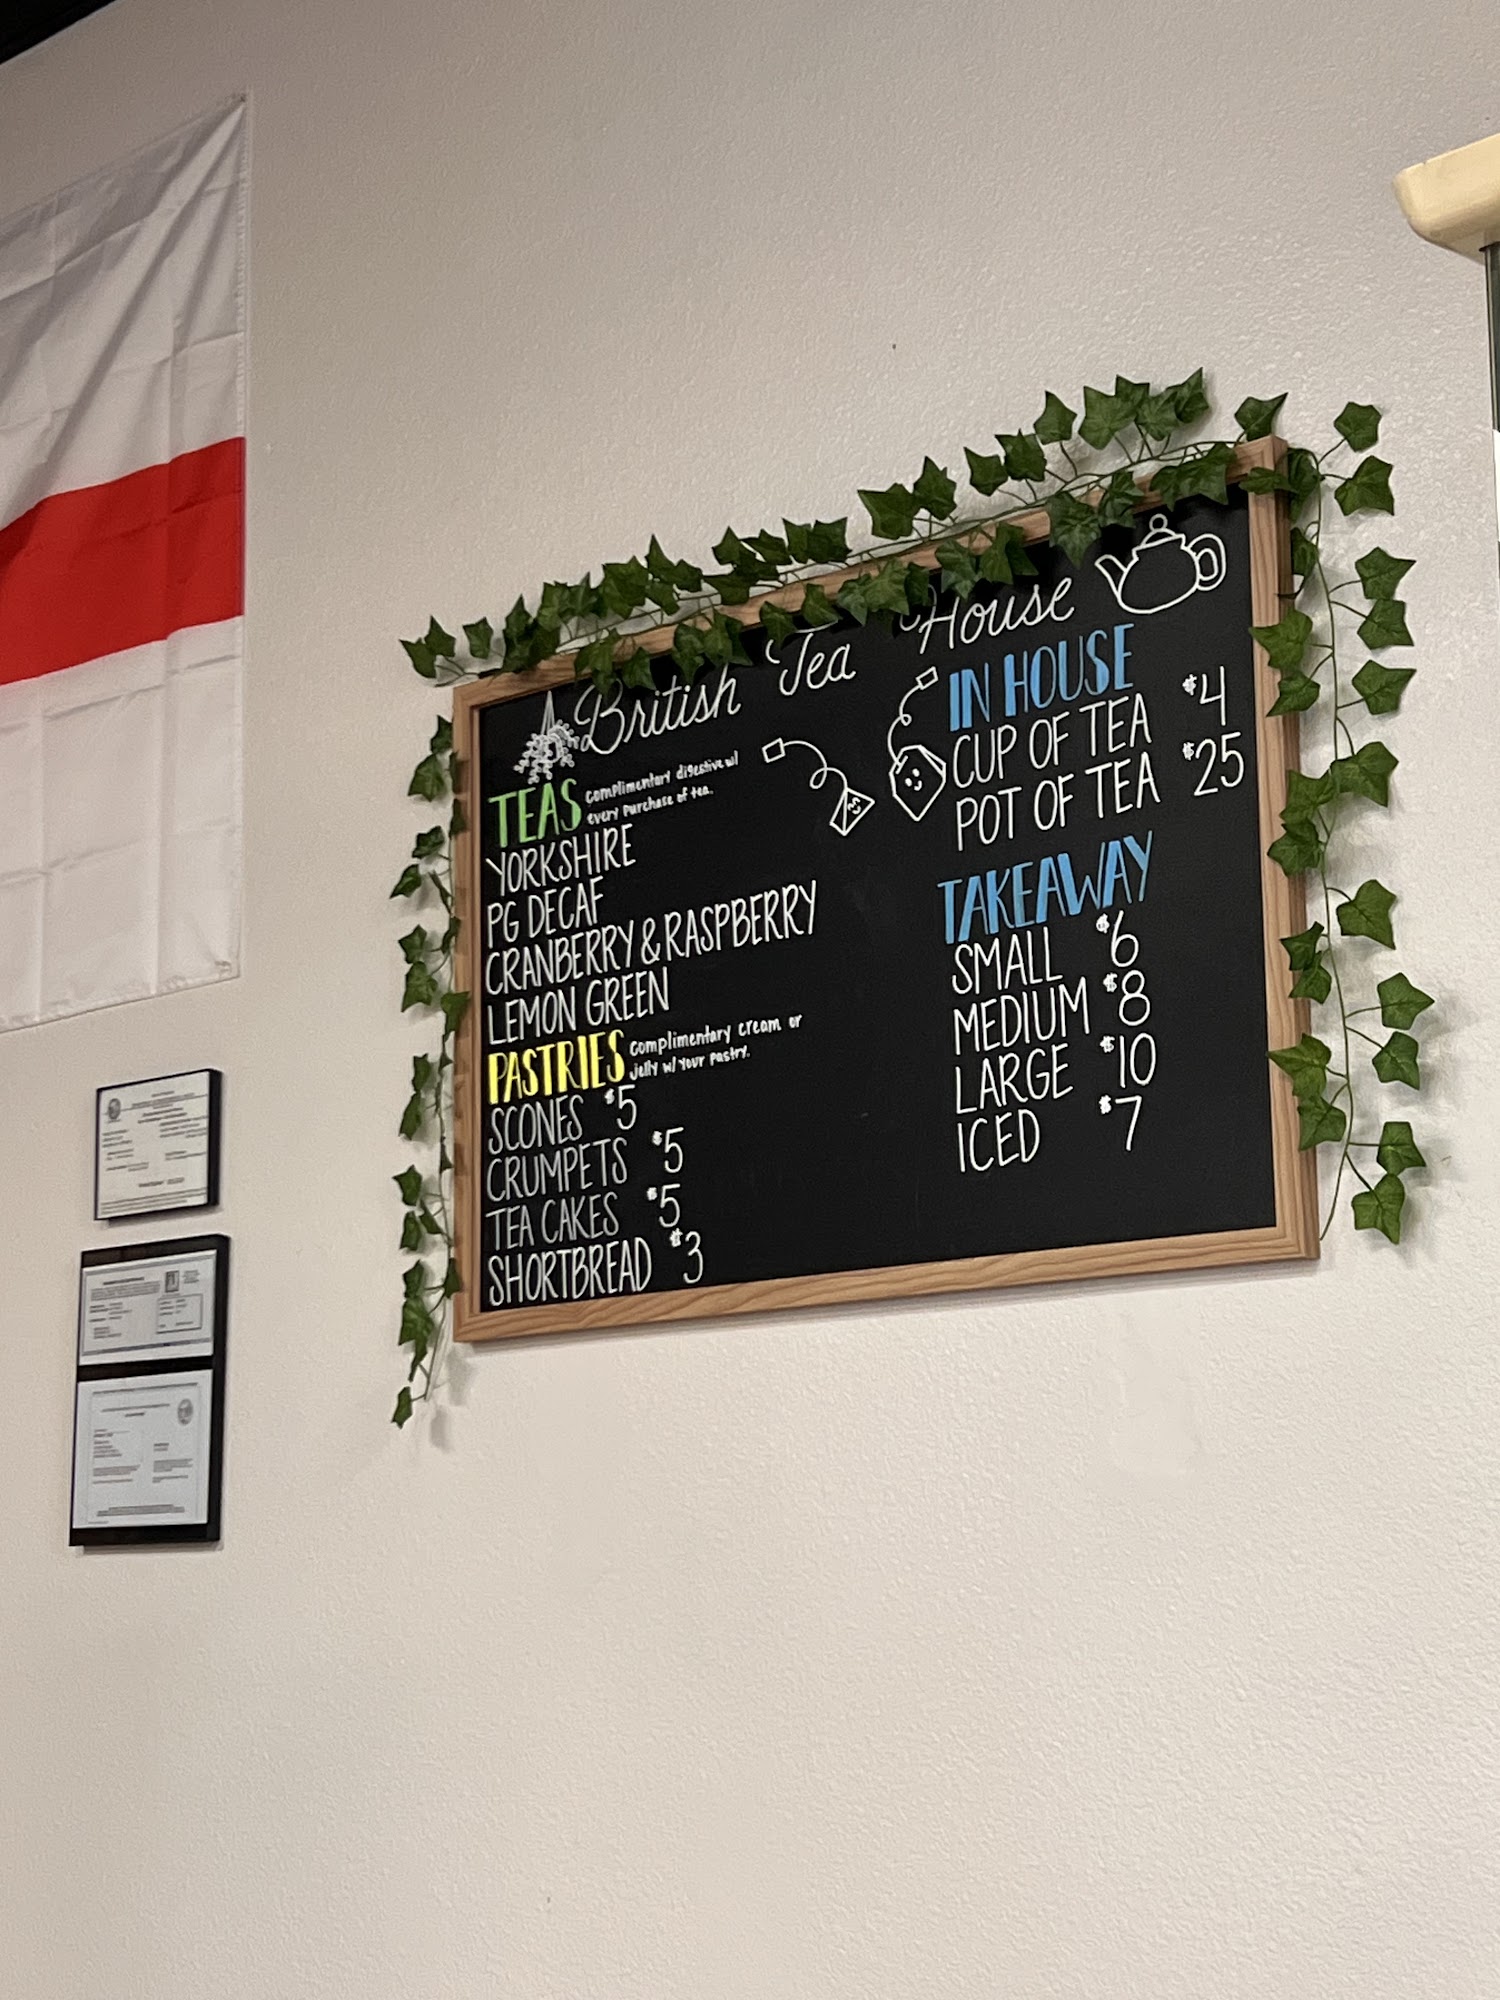 British Tea House
TEAS complimentary digestive w/
every purchase of tea.
YORKSHIRE
PG DECAF
CRANBERRY & RASPBERRY
LEMON GREEN
PASTRIES complimentary cream or
jelly w/ your pastry.
SCONES $5
CRUMPETS $5
TEA CAKES $5
SHORTBREAD $3
IN HOUSE
CUP OF TEA $4
POT OF TEA $25
TAKEAWAY
SMALL $6
MEDIUM $8
LARGE $10
ICED $7